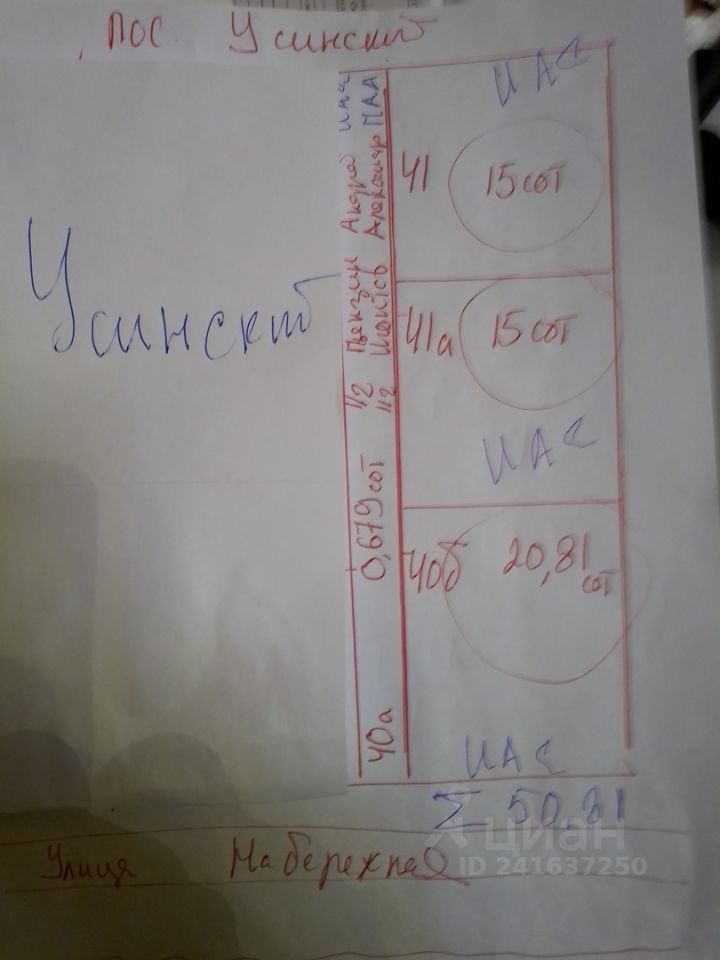 пос. Усинский
ИАС
41
15 сот
Усинский
41а
15 сот
ИАС
1/2 Андрей ИАС
1/2 Александр ПАА
0,679 сот
40б
20,81
сот
40а
ИАС
Σ 50,81
Улица Набережная
циан
ID 241637250